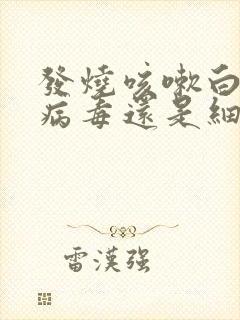 發燒咳嗽白
病毒還是細
雷漢强